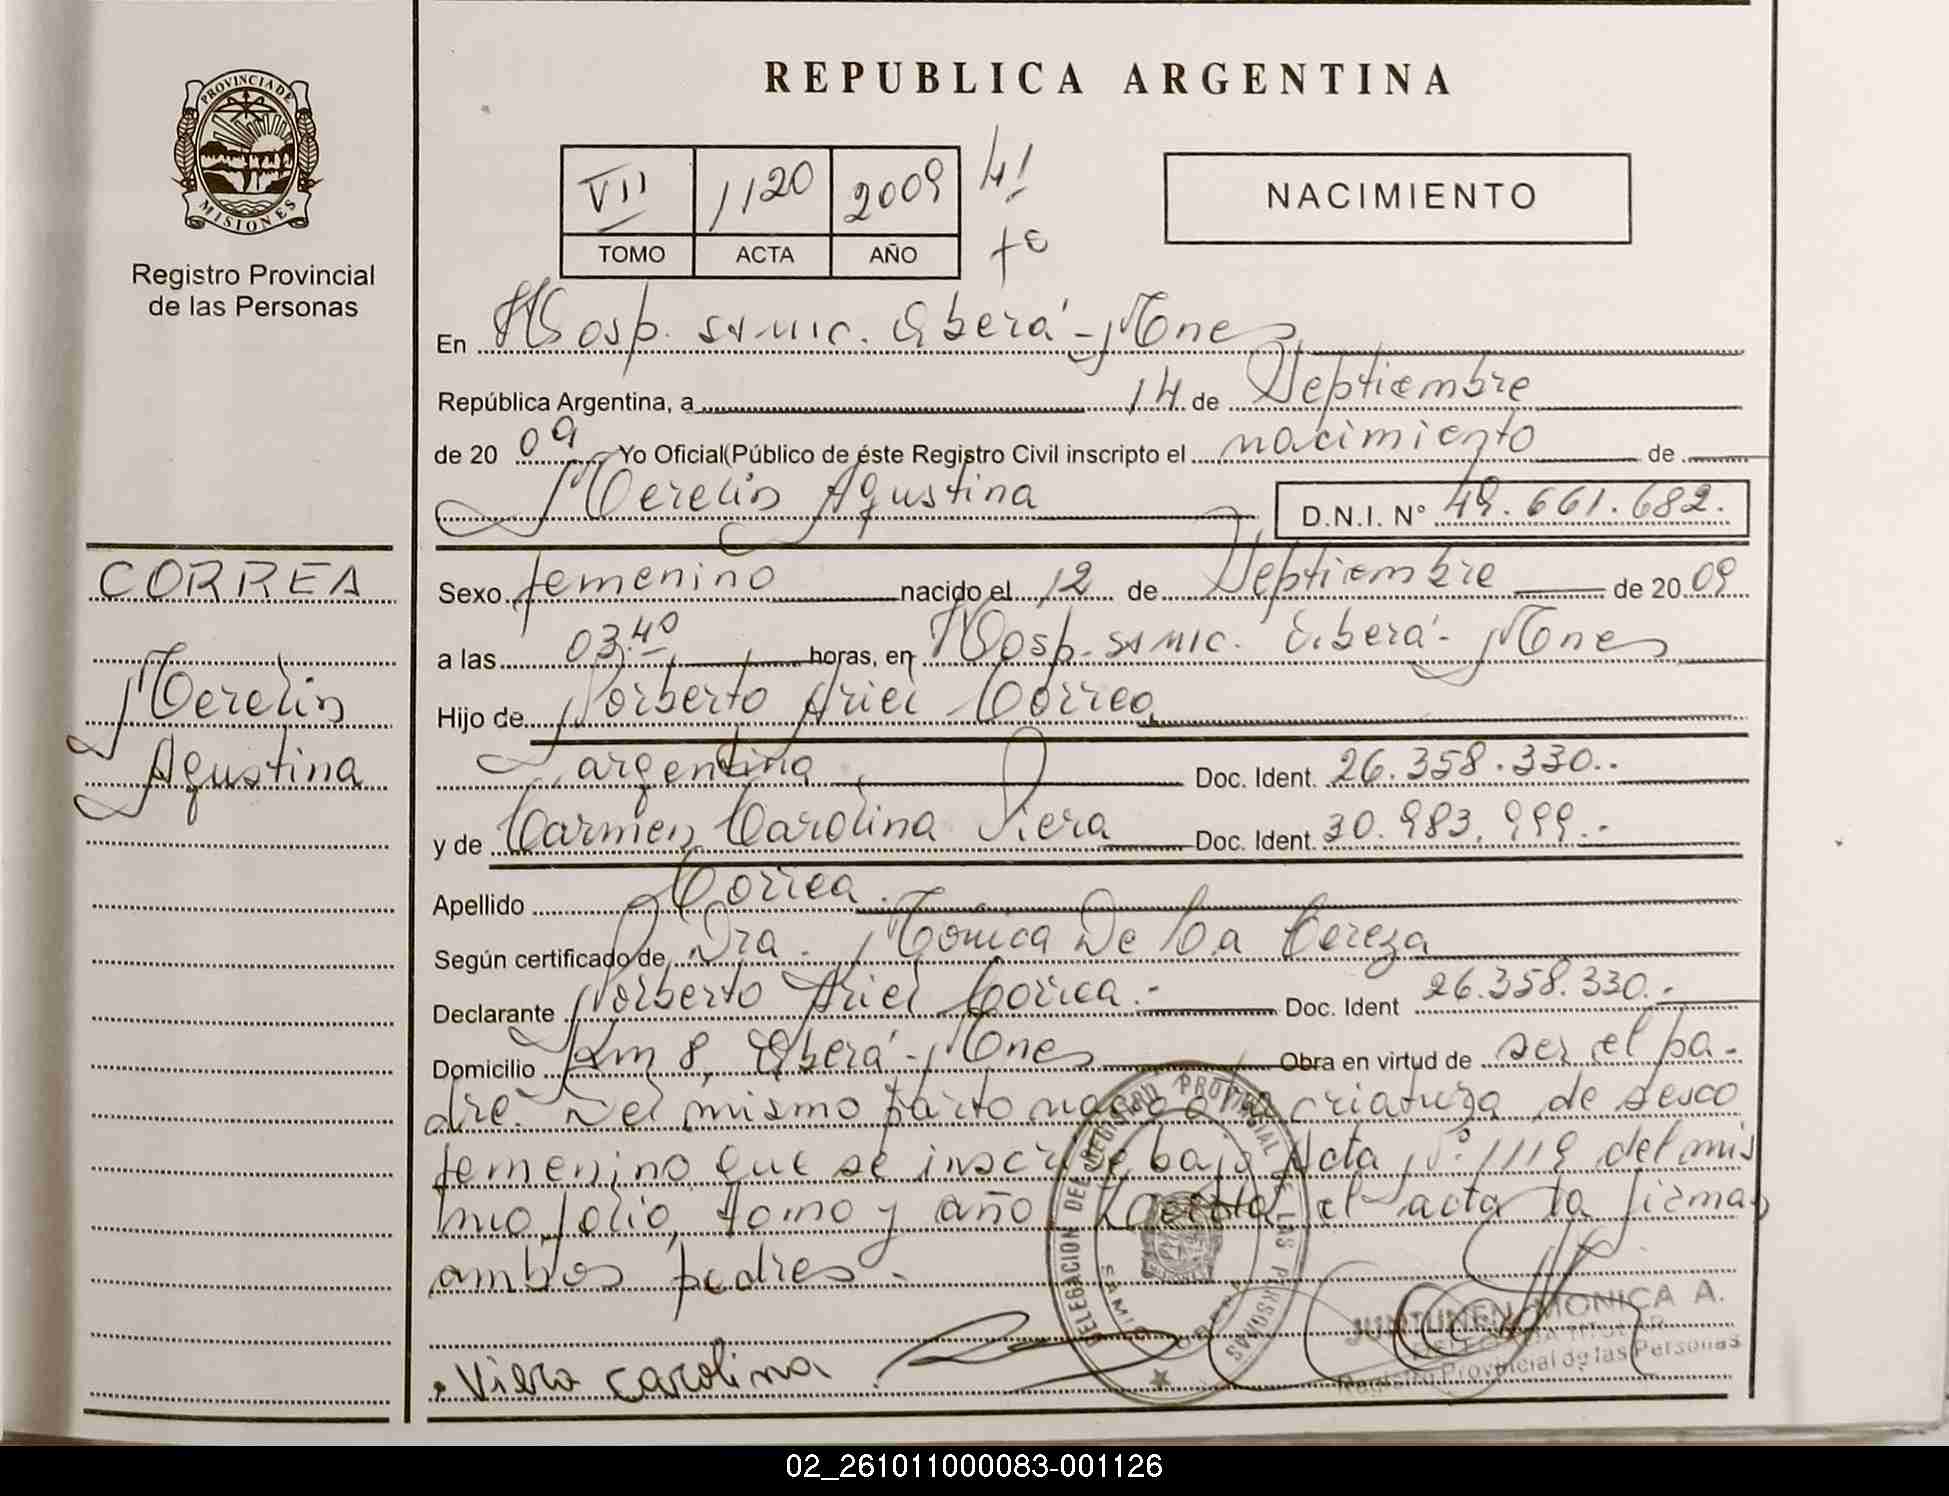 PROVINCIA DE
MISIONES
Registro Provincial
de las Personas
REPUBLICA ARGENTINA
VII 1120 2009 41
TOMO ACTA AÑO
NACIMIENTO
En Hosp. samic. Oberá - Mnes
República Argentina, a 14 de Septiembre
de 20 09 Yo Oficial Público de éste Registro Civil inscripto el nacimiento de
Merelin Agustina D.N.I. N° 49.661.682.
CORREA
Merelin
Agustina
Sexo femenino nacido el 12 de Septiembre de 20 09
a las 03.40 horas, en Hosp. samic. Oberá - Mnes
Hijo de Norberto Ariel Correa
argentina Doc. Ident. 26.358.330.-
y de Carmen Carolina Viera Doc. Ident. 30.983.999.-
Apellido Correa.
Según certificado de Dra. Mónica De La Cereza
Declarante Norberto Ariel Correa.- Doc. Ident 26.358.330.-
Domicilio Km 8, Oberá - Mnes Obra en virtud de ser el pa-
dre. Del mismo parto nació la criatura de sexo
femenino que se inscribe bajo Acta N° 1119 del mis
mo folio, tomo y año. el acta la firman
ambos padres.
Viera Carolina
DELEGACION DEL REGISTRO PROVINCIAL DE LAS PERSONAS
SAMIC OBERA
JUNTUNEN MONICA A.
Registro Provincial de las Personas
02_261011000083-001126